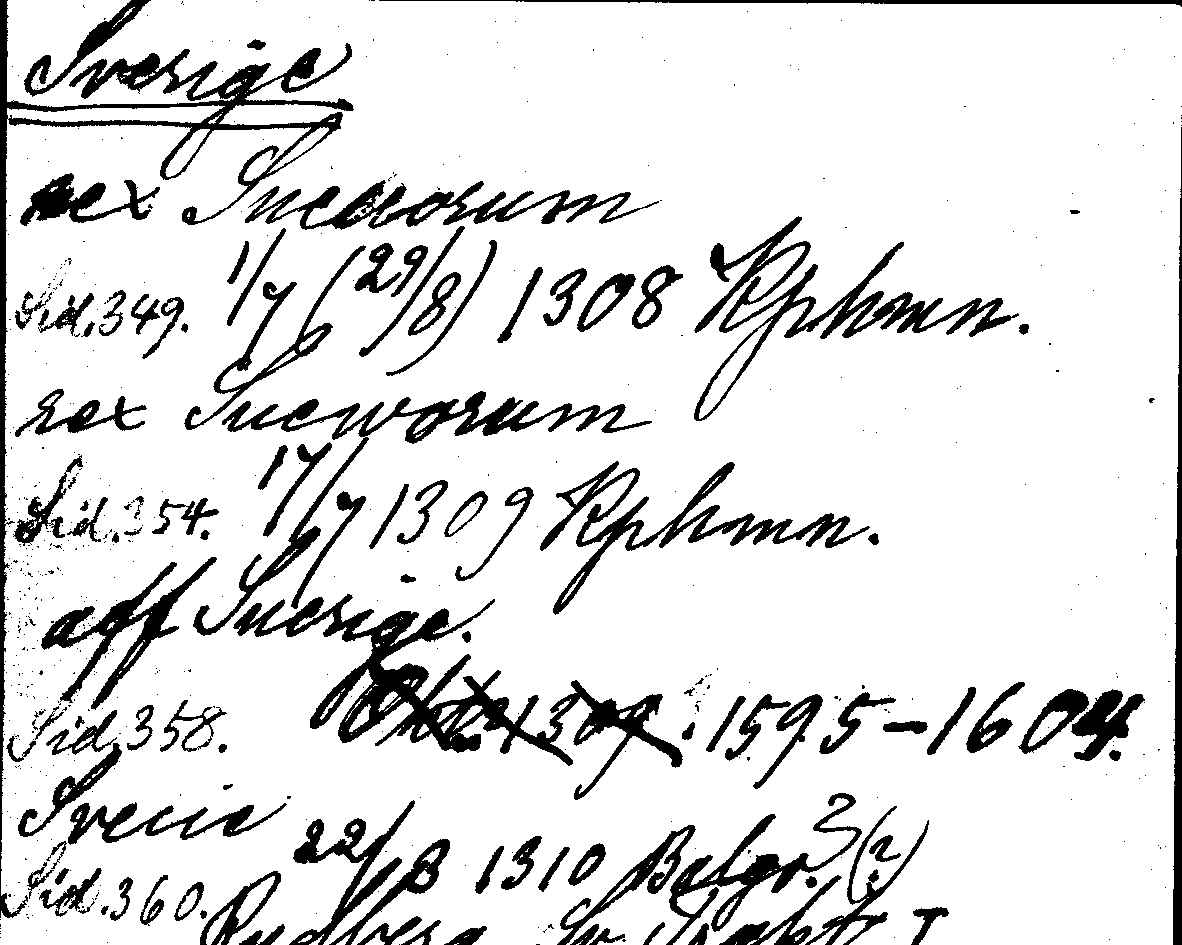 Sverige
rex Sueuorum
Sid. 349. 1/7 (29/8) 1308 Kphmn.
rex Sueworum
Sid. 354. 17/7 1309 Kphmn.
aff Suerige.
Sid. 358. 1309. 1595-1604.
Svecie
Sid. 360. 22/8 1310 Belgr. 3 (?)
Rydberg Sv. Trakt I